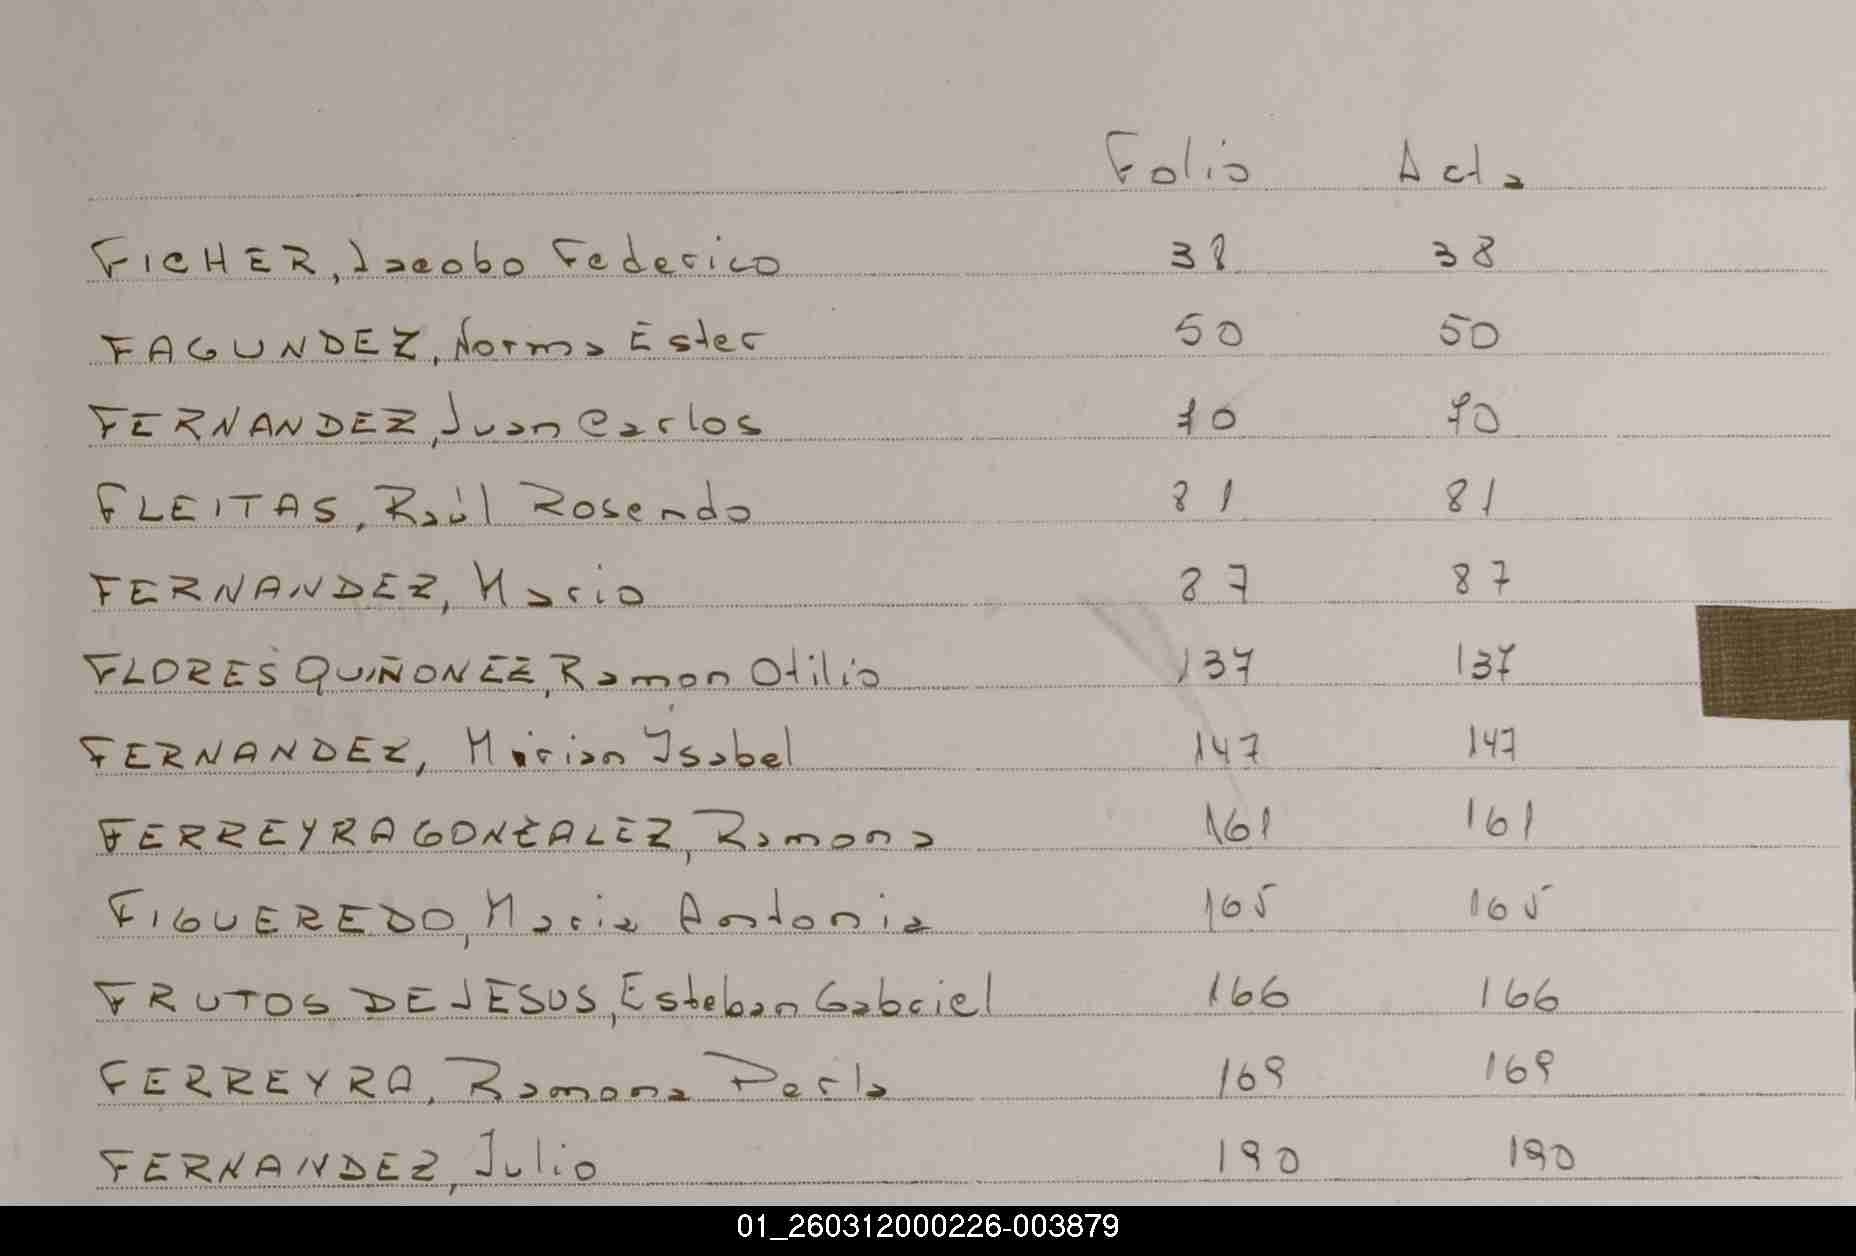 Folio Acta
FICHER, Jacobo Federico 38 38
FAGUNDEZ, Norma Ester 50 50
FERNANDEZ, Juan Carlos 70 70
FLEITAS, Raúl Rosendo 81 81
FERNANDEZ, Mario 87 87
FLORES QUIÑONEZ, Ramon Otilio 137 137
FERNANDEZ, Mirian Isabel 147 147
FERREYRA GONZALEZ, Ramona 161 161
FIGUEREDO, Maria Antonia 165 165
FRUTOS DE JESUS, Esteban Gabriel 166 166
FERREYRA, Ramona Perla 169 169
FERNANDEZ, Julio 190 190
01_260312000226-003879